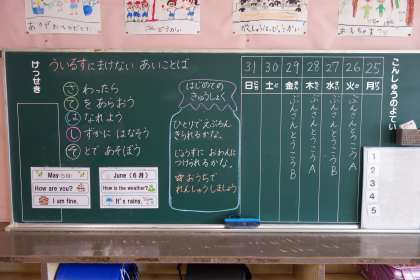 けっせき
ういるすにまけない あいことば
さわったら
てをあらおう
はなれよう
しずかに はなそう
そとで あそぼう
May（5月）
How are you?
I am fine.
June（6月）
How is the weather?
It's rainy.
はじめての
きゅうしょく
ひとりでえぷろん
きられるかな。
じょうずに おわんに
つけられるかな。
☆おうちで
れんしゅうしましょう
こんしゅうのよてい
25 月
26 火 ぶんさんとうこうA
27 水 ぶんさんとうこうB
28 木 ぶんさんとうこうA
29 金 ぶんさんとうこうB
30 土
31 日
1
2
3
4
5